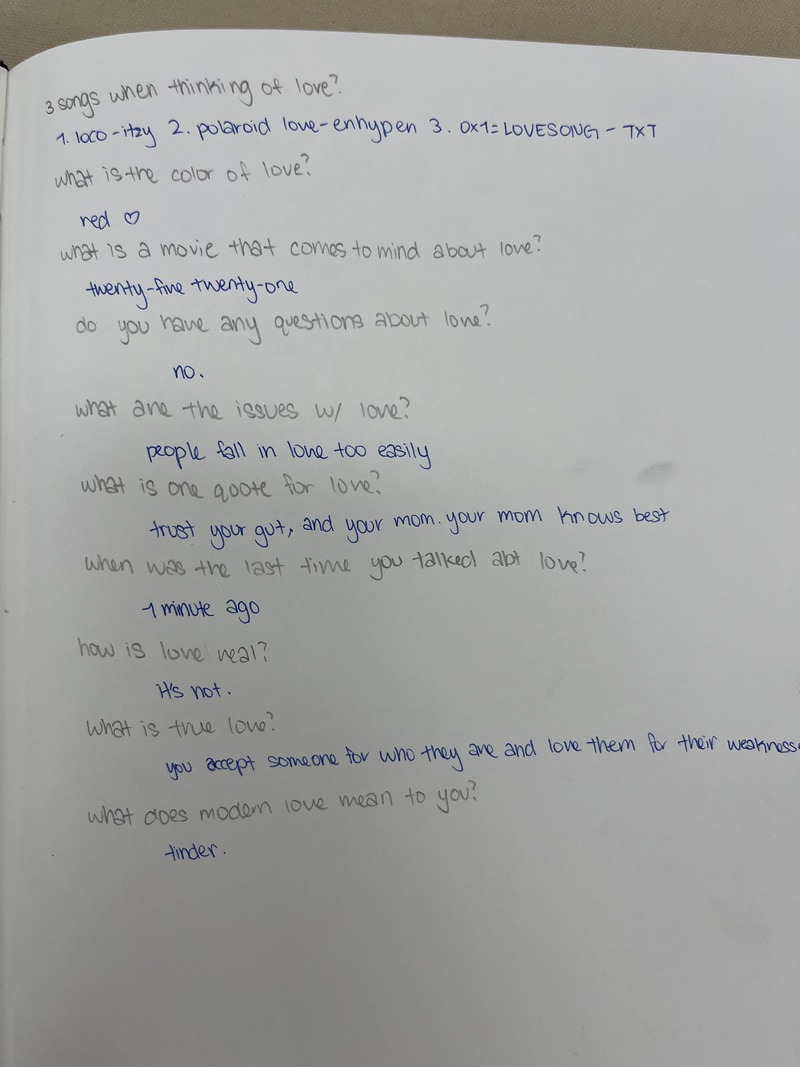 3 songs when thinking of love?
1. loco-itzy 2. polaroid love-enhypen 3. 0x1=LOVESONG - TXT
what is the color of love?
red ♡
what is a movie that comes to mind about love?
twenty-five twenty-one
do you have any questions about love?
no.
what are the issues w/ love?
people fall in love too easily
what is one qoote for love?
trust your gut, and your mom. your mom knows best
when was the last time you talked abt love?
1 minute ago
how is love real?
it's not.
what is true love?
you accept someone for who they are and love them for their weakness.
what does modern love mean to you?
tinder.